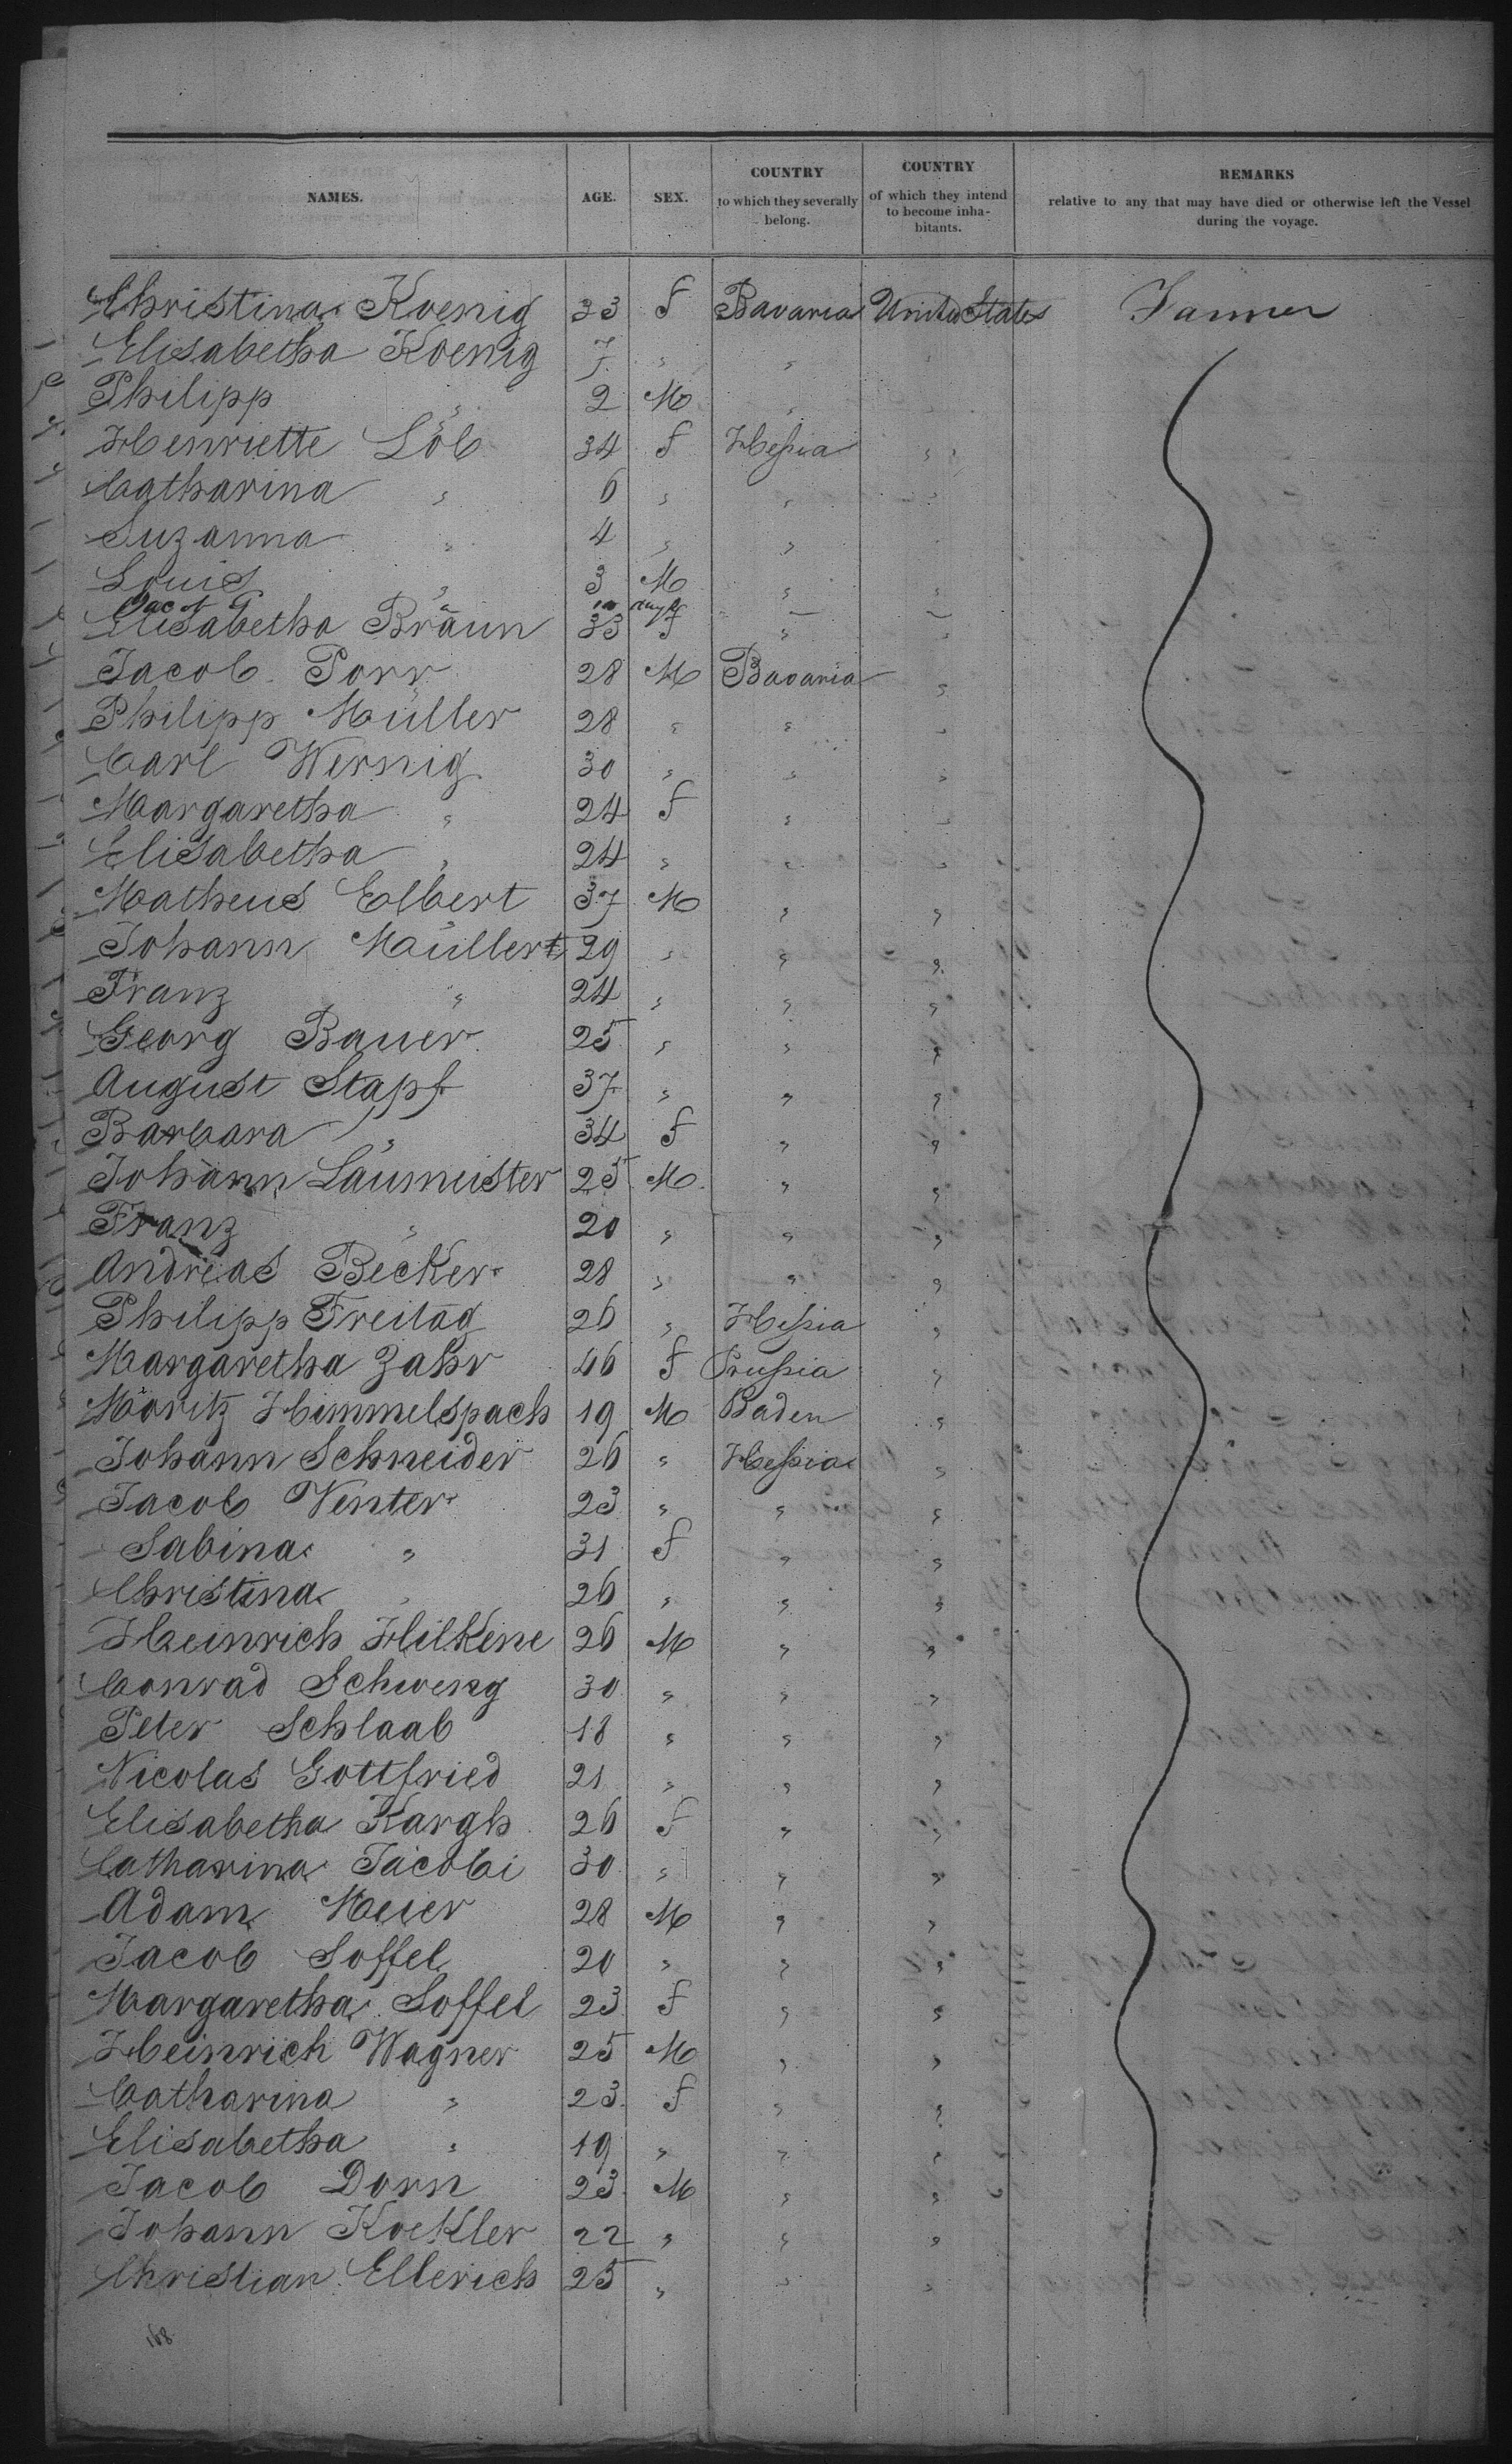 NAMES. AGE. SEX. COUNTRY to which they severally belong. COUNTRY of which they intend to become inhabitants. REMARKS relative to any that may have died or otherwise left the Vessel during the voyage.
Christina Koenig 33 f Bavaria United States Farmer
Elisabetha Koenig 7 " "
Philipp " 2 M "
Henriette Löb 34 f Heſsia "
Catharina " 6 " " "
Suzanna " 4 " "
Louis " 3 M " "
Jacob
Elisabetha Braun 33 f " "
Jacob Porr 28 M Bavaria "
Philipp Müller 28 " " "
Carl Wernig 30 " " "
Margaretha " 24 f " "
Elisabetha " 24 " " "
Matheus Elbert 37 M " "
Johann Müllert 29 " " "
Franz " 24 " " "
Georg Bauer 25 " " "
August Stapf 37 " " "
Barbara " 34 f " "
Johann Laumeister 25 M " "
Franz " 20 " " "
Andreas Becker 28 " " "
Philipp Freitag 26 " Heſsia "
Margaretha Zahr 46 f Pruſsia "
Moritz Himmelspach 19 M Baden "
Johann Schneider 26 " Heſsia "
Jacob Venter 23 " " "
Sabina " 31 f " "
Christina " 26 " " "
Heinrich Hilkene 26 M " "
Conrad Schweng 30 " " "
Peter Schlaab 18 " " "
Nicolas Gottfried 21 " " "
Elisabetha Kargh 26 f " "
Catharina Jacobi 30 " " "
Adam Meier 28 M " "
Jacob Soffel 20 " " "
Margaretha Soffel 23 f " "
Heinrich Wagner 25 M " "
Catharina " 23 f " "
Elisabetha " 19 " " "
Jacob Dorn 23 M " "
Johann Koekler 22 " " "
Christian Ellerich 25 " " "
168